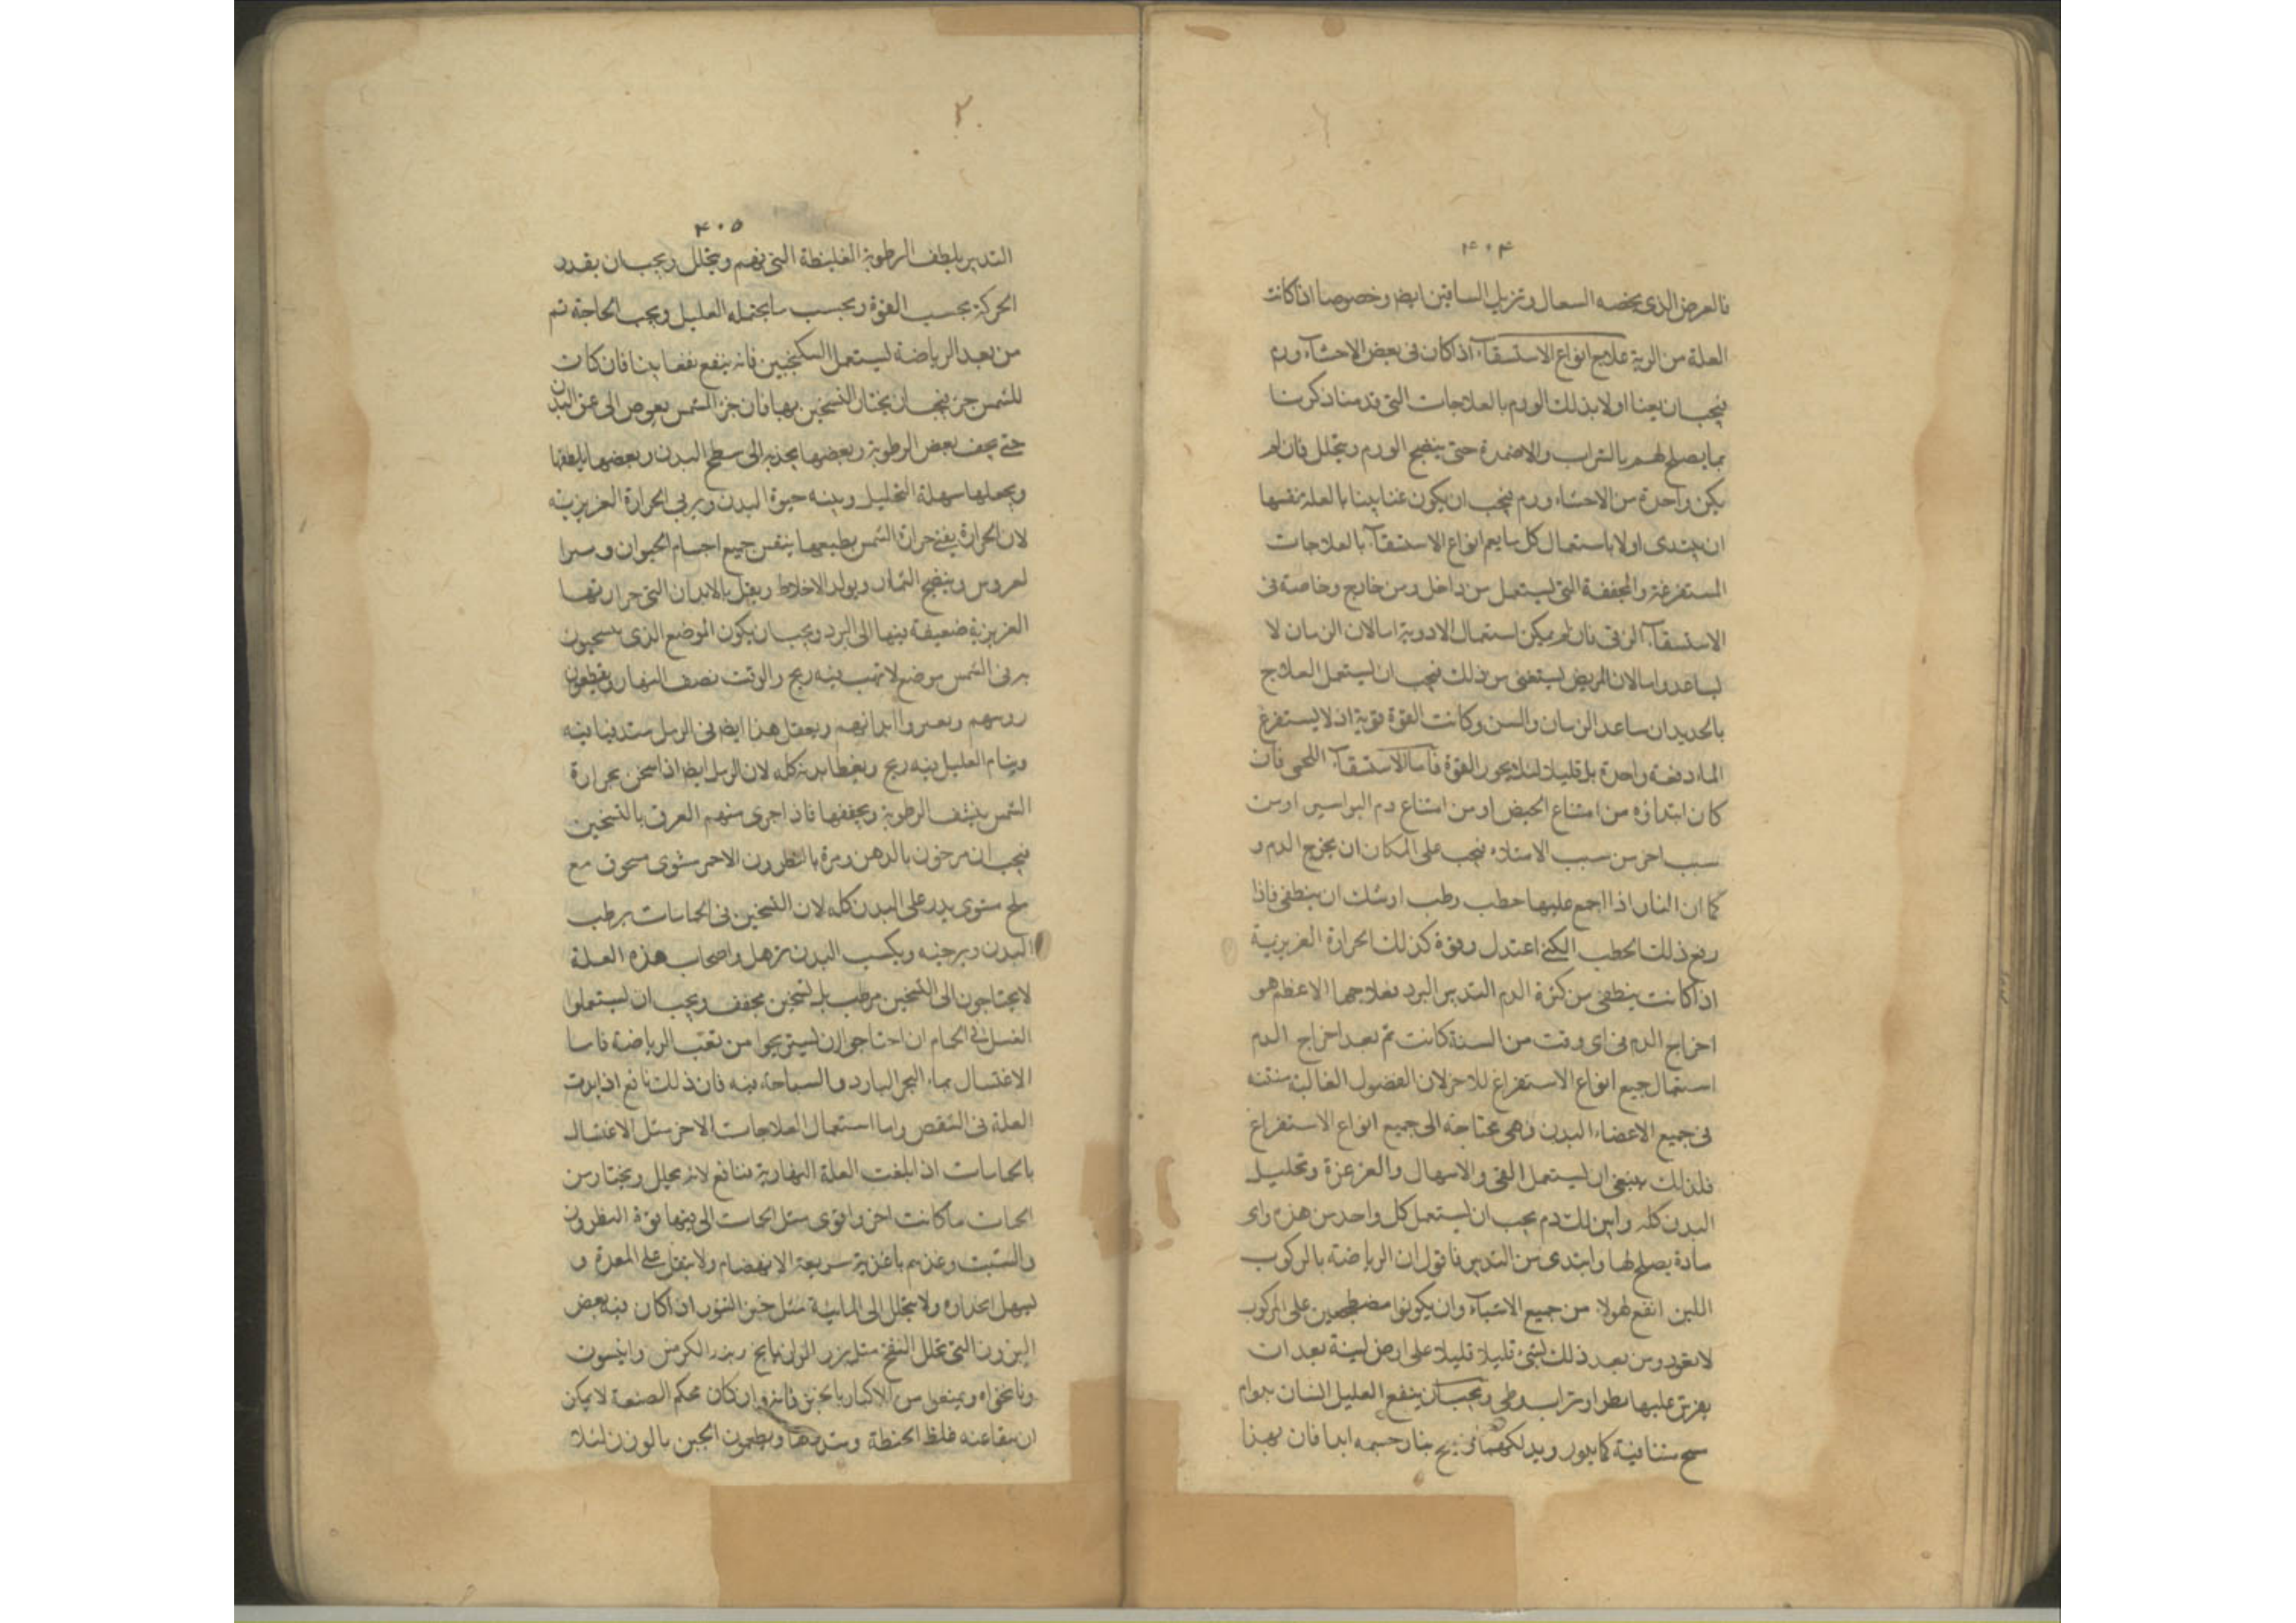 ۴۰۴
فالعرض الذى يخصه السعال وتزيل الساقين ايض وخصوصا اذا كانت
العلة من الرية علاج انواع الاستسقاء اذا كان فى بعض الاحشاء ورم
فيجب ان يعنا اولا بذلك الورم بالعلاجات التى قدمنا ذكرنا
بما يصلح لهم بالشراب والاضمدة حتى ينضج الورم ويتحلل فان لم
يكن واحدة من الاحشاء ورم فيجب ان يكون عنايتنا بالعلة نفسها
ان يبتدى اولا باستعمال كل ما يعم انواع الاستسقاء بالعلاجات
المستفرغة والمجففة التى ليستعمل من داخل ومن خارج وخاصة فى
الاستسقاء الزقى فان لم يمكن استعمال الادوية اما لان الزمان لا
يساعد واما لان المريض ليستعفى من ذلك فيجب ان ليستعمل العلاج
بالحديد ان ساعد الزمان والسن وكانت القوة قوية اذ لا يستفرغ
الماء دفعة واحدة بل قليلا لئلا يحور القوة فاما الاستسقاء اللحمى فان
كان ابتداؤه من امتناع الحيض او من امتناع دم البواسير او من
سبب اخر من سبب الامتلاء فيجب على المكان ان يخرج الدم و
كما ان النار اذا اجمع عليها حطب رطب اوشك ان ينطفى فاذا
رفع ذلك الحطب الكثى اعتدل وقوة كذلك الحرارة الغريزية
اذا كانت ينطفى من كثرة الدم التدبير البرد فعلاجها الاعظم هو
اخراج الدم فى اى وقت من السنة كانت ثم بعد اخراج الدم
استعمال جميع انواع الاستفراغ للاخر لان الفضول الغالبة منتنه
فى جميع الاعضاء البدن وهى محتاجة الى جميع انواع الاستفراغ
فلذلك ينبغى ان ليستعمل القى والاسهال والغرغرة وتحليل
البدن كله وابين لك دم يجب ان ليستعمل كل واحد من هذه واى
مادة يصلح لها وابتدى من التدبير فاقول ان الرياضة بالركوب
اللين انفع لهولا من جميع الاشياء وان يكونوا مضطجعين على المركوب
لا بقود ومن بعد ذلك لشى قليلا قليلا على ارض لينة بعد ان
يفرش عليها نطر او تراب وطى ويجب ان ينفع العليل النسان بدوام
۲
۴۰۵
التدبير يلطف الرطوبة الغليظة التى فيهم ويتحلل ويجب ان يقدر
الحركة بحسب القوة وبحسب ما يحتمله العليل وبحب الحاجة ثم
من بعد الرياضة ليستعمل السكنجبين فانه ينفع نفعا بينا فان كانت
للشمس حر فيجب ان يختار التسخين بها فان حر الشمس يغوص الى عمق البدن
حتى يجف بعض الرطوبة وبعضها يجذبه الى سطح البدن وبعضها يلطفها
ويجعلها سهلة التحليل وبينه حيوة البدن ويربى الحرارة الغريزية
لان الحرارة يعنى حرارة الشمس بطبعها ينعس جميع اجسام الحيوان و
لعروس وينضج الثمار ويولد الاخلاط ويقبل بالابدان التى حرارتها
الغريزية ضعيفة بينها الى البرد ويجب ان يكون الموضع الذى يسخنون
به فى الشمس موضع لا تهب فيه ريح والوقت نصف النهار ويغطون
روسهم ابدانهم ويفعل هذا ايض فى الرمل فيه
وينام العليل فيه ريح ويغطا بدنه كله لان الرمل ايض اذا سخن بحرارة
الشمس ينشف الرطوبة ويجففها فاذا جرى منهم العرق بالتسخين
فيجب ان يمرخون بالدهن ومرة بالنطرون الاحمر مشوى مسحوق مع
ملح مشوى يدر على البدن كله لان التسخين فى الحمامات يرطب
البدن ويرخيه ويكسب البدن ترهل واصحاب هذه العلة
لا يحتاجون الى التسخين مرطب بل تسخين مجفف ويجب ان ليستعملوا
الغسل فى الحمام ان احتاجوا ان ليستريحوا من تعب الرياضة فاما
الاغتسال بماء البحر البارد والسباحة فيه فان ذلك نافع اذا بدت
العلة فى التنقص واما استعمال العلاجات الاخر مثل الاغتسال
بالحمامات اذا بلغت العلة النهاوية فنافع لانه يحلل ويختار من
الحمات ما كانت احر واقوى مثل الحمات التى فيها قوة النطرون
والشبت وغذهم باغذية سريعة الانهضام ولا يثقل على المعدة و
ليسهل انحداره ولا يتحلل الى المائية مثل خبز التنور اذا كان فيه بعض
البزور التى تحلل النفخ مثل بزر الرازيانج وبزر الكرفس وانيسون
ونانخواه ويمنعون من الاكثار بالخبز فانه وان كان محكم الصنعة لا يمكن